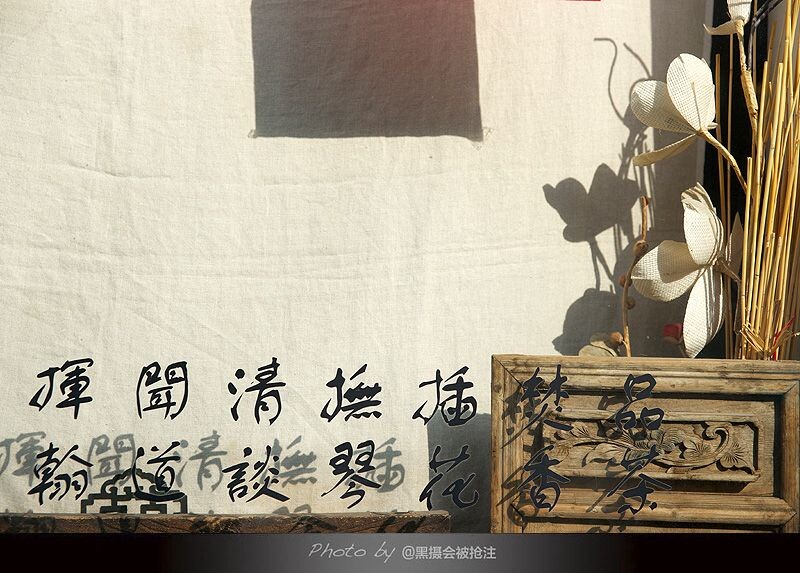 品茶
焚香
插花
撫琴
清談
聞道
揮翰
Photo by @黑摄会被抢注